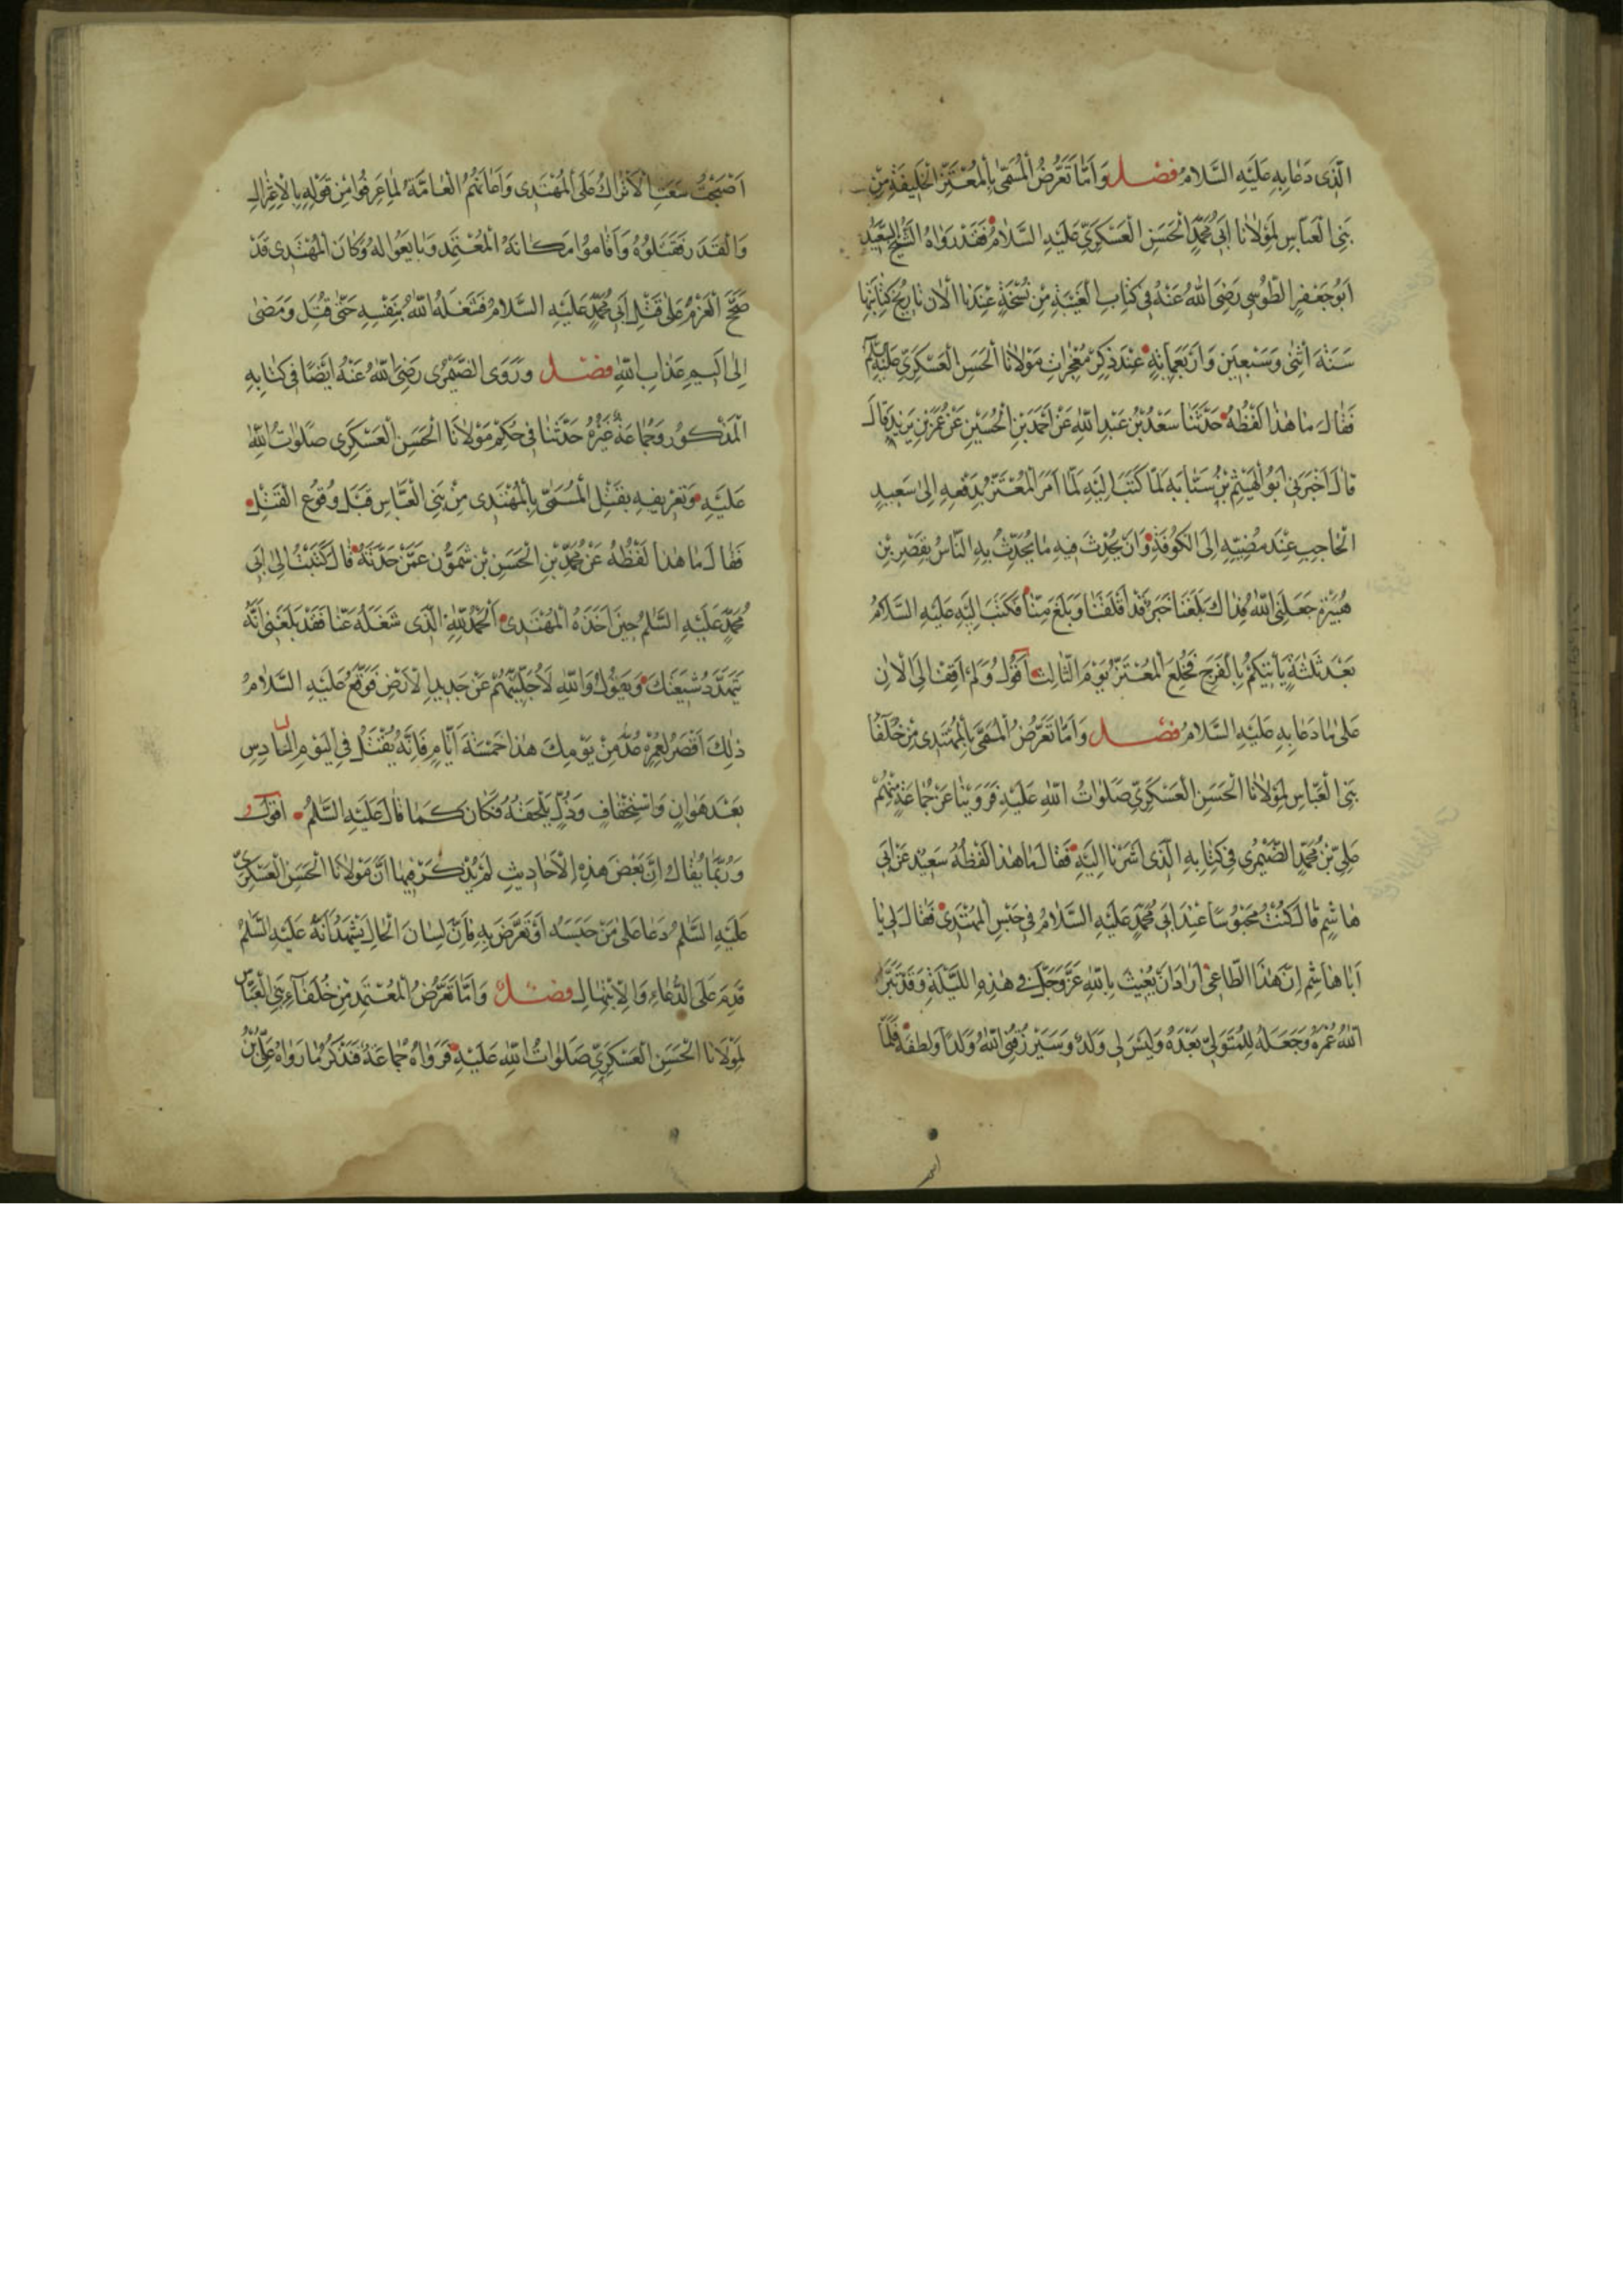 الَّذى دَعٰا بِهِ عَلَيْهِ السَّلامُ فصل وَاَمّٰا تَعَرُّضُ الْمُسَمّىٰ بِالْمُعْتَزِّ الْخَليفَةِ مِنْ
بَنِى الْعَبّاسِ لِمَوْلانٰا اَبى مُحَمَّدٍ الْحَسَنِ الْعَسْكَرِىِّ عَلَيْهِ السَّلامُ فَقَدْ رَوٰاهُ الشَّيْخُ السَّعيدُ
اَبُو جَعْفَرٍ الطُّوسِى رَضِىَ اللهُ عَنْهُ فى كِتٰابِ الْغَيْبَةِ مِنْ نُسْخَةٍ عِنْدَنٰا الْاٰنَ تٰاريخُ كِتٰابَتِهٰا
سَنَةَ اثْنَى وَسَبْعينَ وَاَرْبَعِمِائَةٍ عِنْدَ ذِكْرِ مُعْجِزٰاتِ مَوْلانٰا الْحَسَنِ الْعَسْكَرِىِّ عَلَيْهِ السَّلٰمُ
فَقٰالَ مٰا هٰذٰا لَفْظُهُ حَدَّثَنٰا سَعْدُ بْنُ عَبْدِ اللهِ عَنْ اَحْمَدَ بْنِ الْحُسَيْنِ عَنْ عُمَرَ بْنِ يَزيدَ قٰالَ
قٰالَ اَخْبَرَنى اَبُو الْهَيْثَمِ بْنُ سَبّٰابَه لَمّٰا كَتَبَ اِلَيْهِ لَمّٰا اَمَرَ الْمُعْتَزُّ بِدَفْعِهِ اِلىٰ سَعيدٍ
الْحٰاجِبِ عِنْدَ مُضِيِّهِ اِلَى الْكُوفَةِ وَاَنْ يُحْدِثَ فيهِ مٰا يُحَدِّثُ بِهِ النّٰاسُ بِقَصْرِ بْنِ
هُبَيْرَةَ جَعَلَنِى اللهُ فِدٰاكَ بَلَغَنٰا خَبَرٌ قَدْ اَقْلَقَنٰا وَبَلَغَ مِنّٰا فَكَتَبَ اِلَيْهِ عَلَيْهِ السَّلامُ
بَعْدَ ثَلٰثَةٍ يَأْتيكُمْ بِالْفَرَجِ فَخُلِعَ الْمُعْتَزُّ يَوْمَ الثّٰالِثِ اَقُولُ وَلَمْ اَقِفْ اِلَى الْاٰنِ
عَلىٰ مٰا دَعٰا بِهِ عَلَيْهِ السَّلامُ فصل وَاَمّٰا تَعَرُّضُ الْمُسَمّىٰ بِالْمُهْتَدى مِنْ خُلَفٰا
بَنِى الْعَبّٰاسِ لِمَوْلٰانٰا الْحَسَنِ الْعَسْكَرِىِّ صَلَوٰاتُ اللهِ عَلَيْهِ فَرَوَيْنٰا عَنْ جَمٰاعَةٍ مِنْهُمْ
عَلِىِّ بْنِ مُحَمَّدٍ الصَّيْمُرى فى كِتٰابِهِ الَّذى اَشَرْنٰا اِلَيْهِ فَقٰالَ مٰا هٰذٰا لَفْظُهُ سَعيدٌ عَنْ اَبى
هٰاشِمٍ قٰالَ كُنْتُ مَحْبُوسًا عِنْدَ اَبى مُحَمَّدٍ عَلَيْهِ السَّلامُ فى حَبْسِ الْمُهْتَدى فَقٰالَ لى يٰا
اَبٰا هٰاشِمٍ اِنَّ هٰذَا الطّٰاغى اَرٰادَ اَنْ يَعْبَثَ بِاللهِ عَزَّ وَجَلَّ فى هٰذِهِ اللَّيْلَةِ وَقَدْ بَتَّرَ
اللهُ عُمْرَهُ وَجَعَلَهُ لِلْمُتَوَلّى بَعْدَهُ وَلَيْسَ لى وَلَدٌ وَسَيَرْزُقُنِى اللهُ وَلَدًا وَلُطْفَهُ فَلَمّٰا
اَصْبَحْتُ شَغَبَ الْاَتْرٰاكُ عَلَى الْمُهْتَدى وَاَعٰانَتْهُمُ الْعٰامَّةُ لِمٰا عَرَفُوا مِنْ قَوْلِهِ بِالْاِعْتِزٰالِ
وَالْقَدَرِ فَقَتَلُوهُ وَاَقٰامُوا مَكٰانَهُ الْمُعْتَمِدَ وَبٰايَعُوا لَهُ وَكٰانَ الْمُهْتَدى قَدْ
صَحَّ الْعَزْمُ عَلىٰ قَتْلِ اَبى مُحَمَّدٍ عَلَيْهِ السَّلامُ فَشَغَلَهُ اللهُ بِنَفْسِهِ حَتّىٰ قُتِلَ وَمَضىٰ
اِلىٰ اَليمِ عَذٰابِ اللهِ فصل وَرَوَى الصَّيْمُرى رَضِىَ اللهُ عَنْهُ اَيْضًا فى كِتٰابِهِ
الْمَذْكُورِ وَجَمٰاعَةٌ غَيْرُهُ حَدَّثَنٰا فى حُكْمِ مَوْلانَا الْحَسَنِ الْعَسْكَرِى صَلَوٰاتُ اللهِ
عَلَيْهِ وَتَعْريفِهِ بِقَتْلِ الْمُسَمّىٰ بِالْمُهْتَدى مِنْ بَنِى الْعَبّٰاسِ قَبْلَ وُقُوعِ الْقَتْلِ
فَقٰالَ مٰا هٰذٰا لَفْظُهُ عَنْ مُحَمَّدِ بْنِ الْحَسَنِ بْنِ شَمُّونَ عَمَّنْ حَدَّثَهُ قٰالَ كَتَبْتُ اِلىٰ اَبى
مُحَمَّدٍ عَلَيْهِ السَّلٰمُ حينَ اَخَذَهُ الْمُهْتَدى اَلْحَمْدُ لِلّٰهِ الَّذى شَغَلَهُ عَنّٰا فَقَدْ بَلَغَنى اَنَّهُ
يَتَهَدَّدُ شيعَتَكَ وَيَقُولُ وَاللهِ لَاُجْلِيَنَّهُمْ عَنْ جَديدِ الْاَرْضِ فَوَقَّعَ عَلَيْهِ السَّلامُ
ذٰلِكَ اَقْصَرُ لِعُمْرِهِ عُدَّ مِنْ يَوْمِكَ هٰذٰا خَمْسَةَ اَيّٰامٍ فَاِنَّهُ يُقْتَلُ فِى الْيَوْمِ السّٰادِسِ
بَعْدَ هَوٰانٍ وَاسْتِخْفٰافٍ وَذُلٍّ يَلْحَقُهُ فَكٰانَ كَمٰا قٰالَ عَلَيْهِ السَّلٰمُ اَقُولُ
وَرُبَّمٰا يُقٰالُ اِنَّ بَعْضَ هٰذِهِ الْاَحٰاديثِ لَمْ يُذْكَرْ فيهٰا اَنَّ مَوْلانَا الْحَسَنَ الْعَسْكَرِىَّ
عَلَيْهِ السَّلٰمُ دَعٰا عَلىٰ مَنْ حَبَسَهُ اَوْ تَعَرَّضَ بِهِ فَاِنَّ لِسٰانَ الْحٰالِ يَشْهَدُ اَنَّهُ عَلَيْهِ السَّلٰمُ
قَدِمَ عَلَى الدُّعٰاءِ وَالْاِبْتِهٰالِ فصل وَاَمّٰا تَعَرُّضُ الْمُعْتَمِدِ مِنْ خُلَفٰاءِ بَنِى الْعَبّٰاسِ
لِمَوْلَانٰا الْحَسَنِ الْعَسْكَرِىِّ صَلَوٰاتُ اللهِ عَلَيْهِ فَرَوٰاهُ جَمٰاعَةٌ فَنَذْكُرُ مٰا رَوٰاهُ عَلِىُّ بْنُ